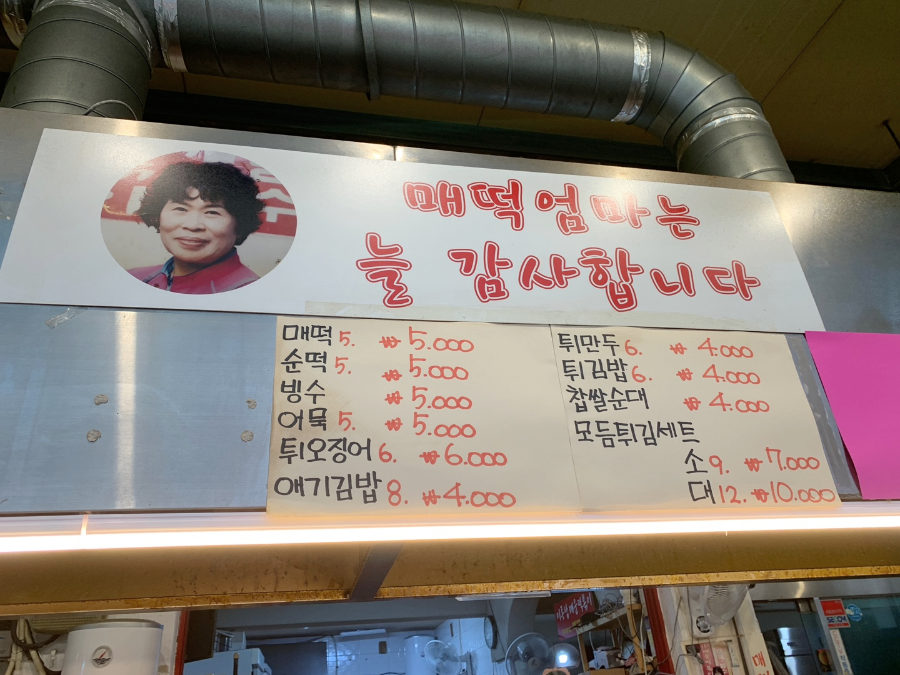 매떡엄마는
늘 감사합니다
매떡 5. ₩5.000
순떡 5. ₩5.000
빙수 ₩5.000
어묵 5. ₩5.000
튀오징어 6. ₩6.000
애기김밥 8. ₩4.000
튀만두 6. ₩4.000
튀김밥 6. ₩4.000
찹쌀순대 ₩4.000
모듬튀김세트
소 9. ₩7.000
대 12. ₩10.000